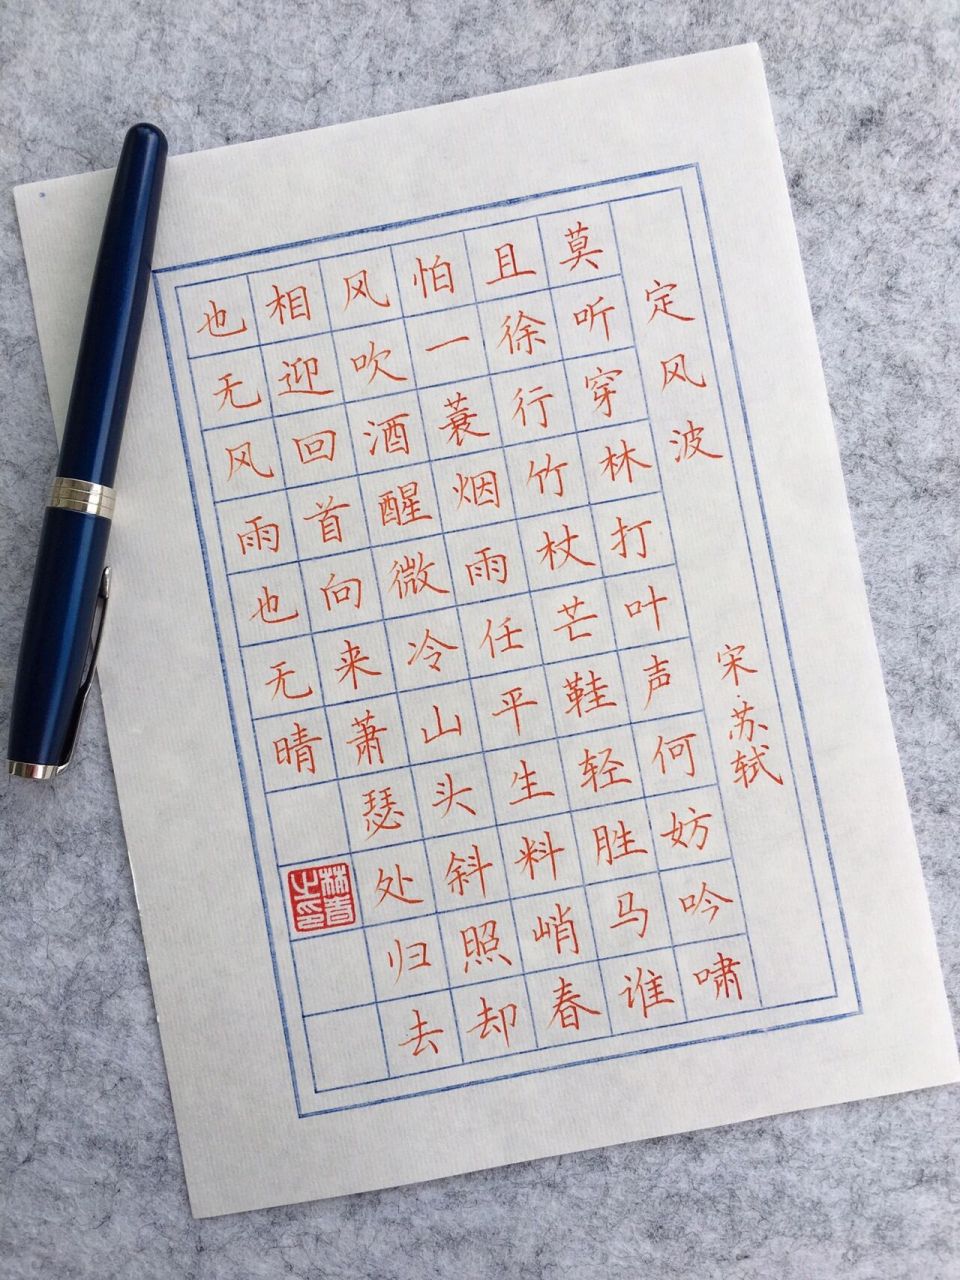 定风波 宋·苏轼
莫听穿林打叶声何妨吟啸
且徐行竹杖芒鞋轻胜马谁
怕一蓑烟雨任平生料峭春
风吹酒醒微冷山头斜照却
相迎回首向来萧瑟处归去
也无风雨也无晴